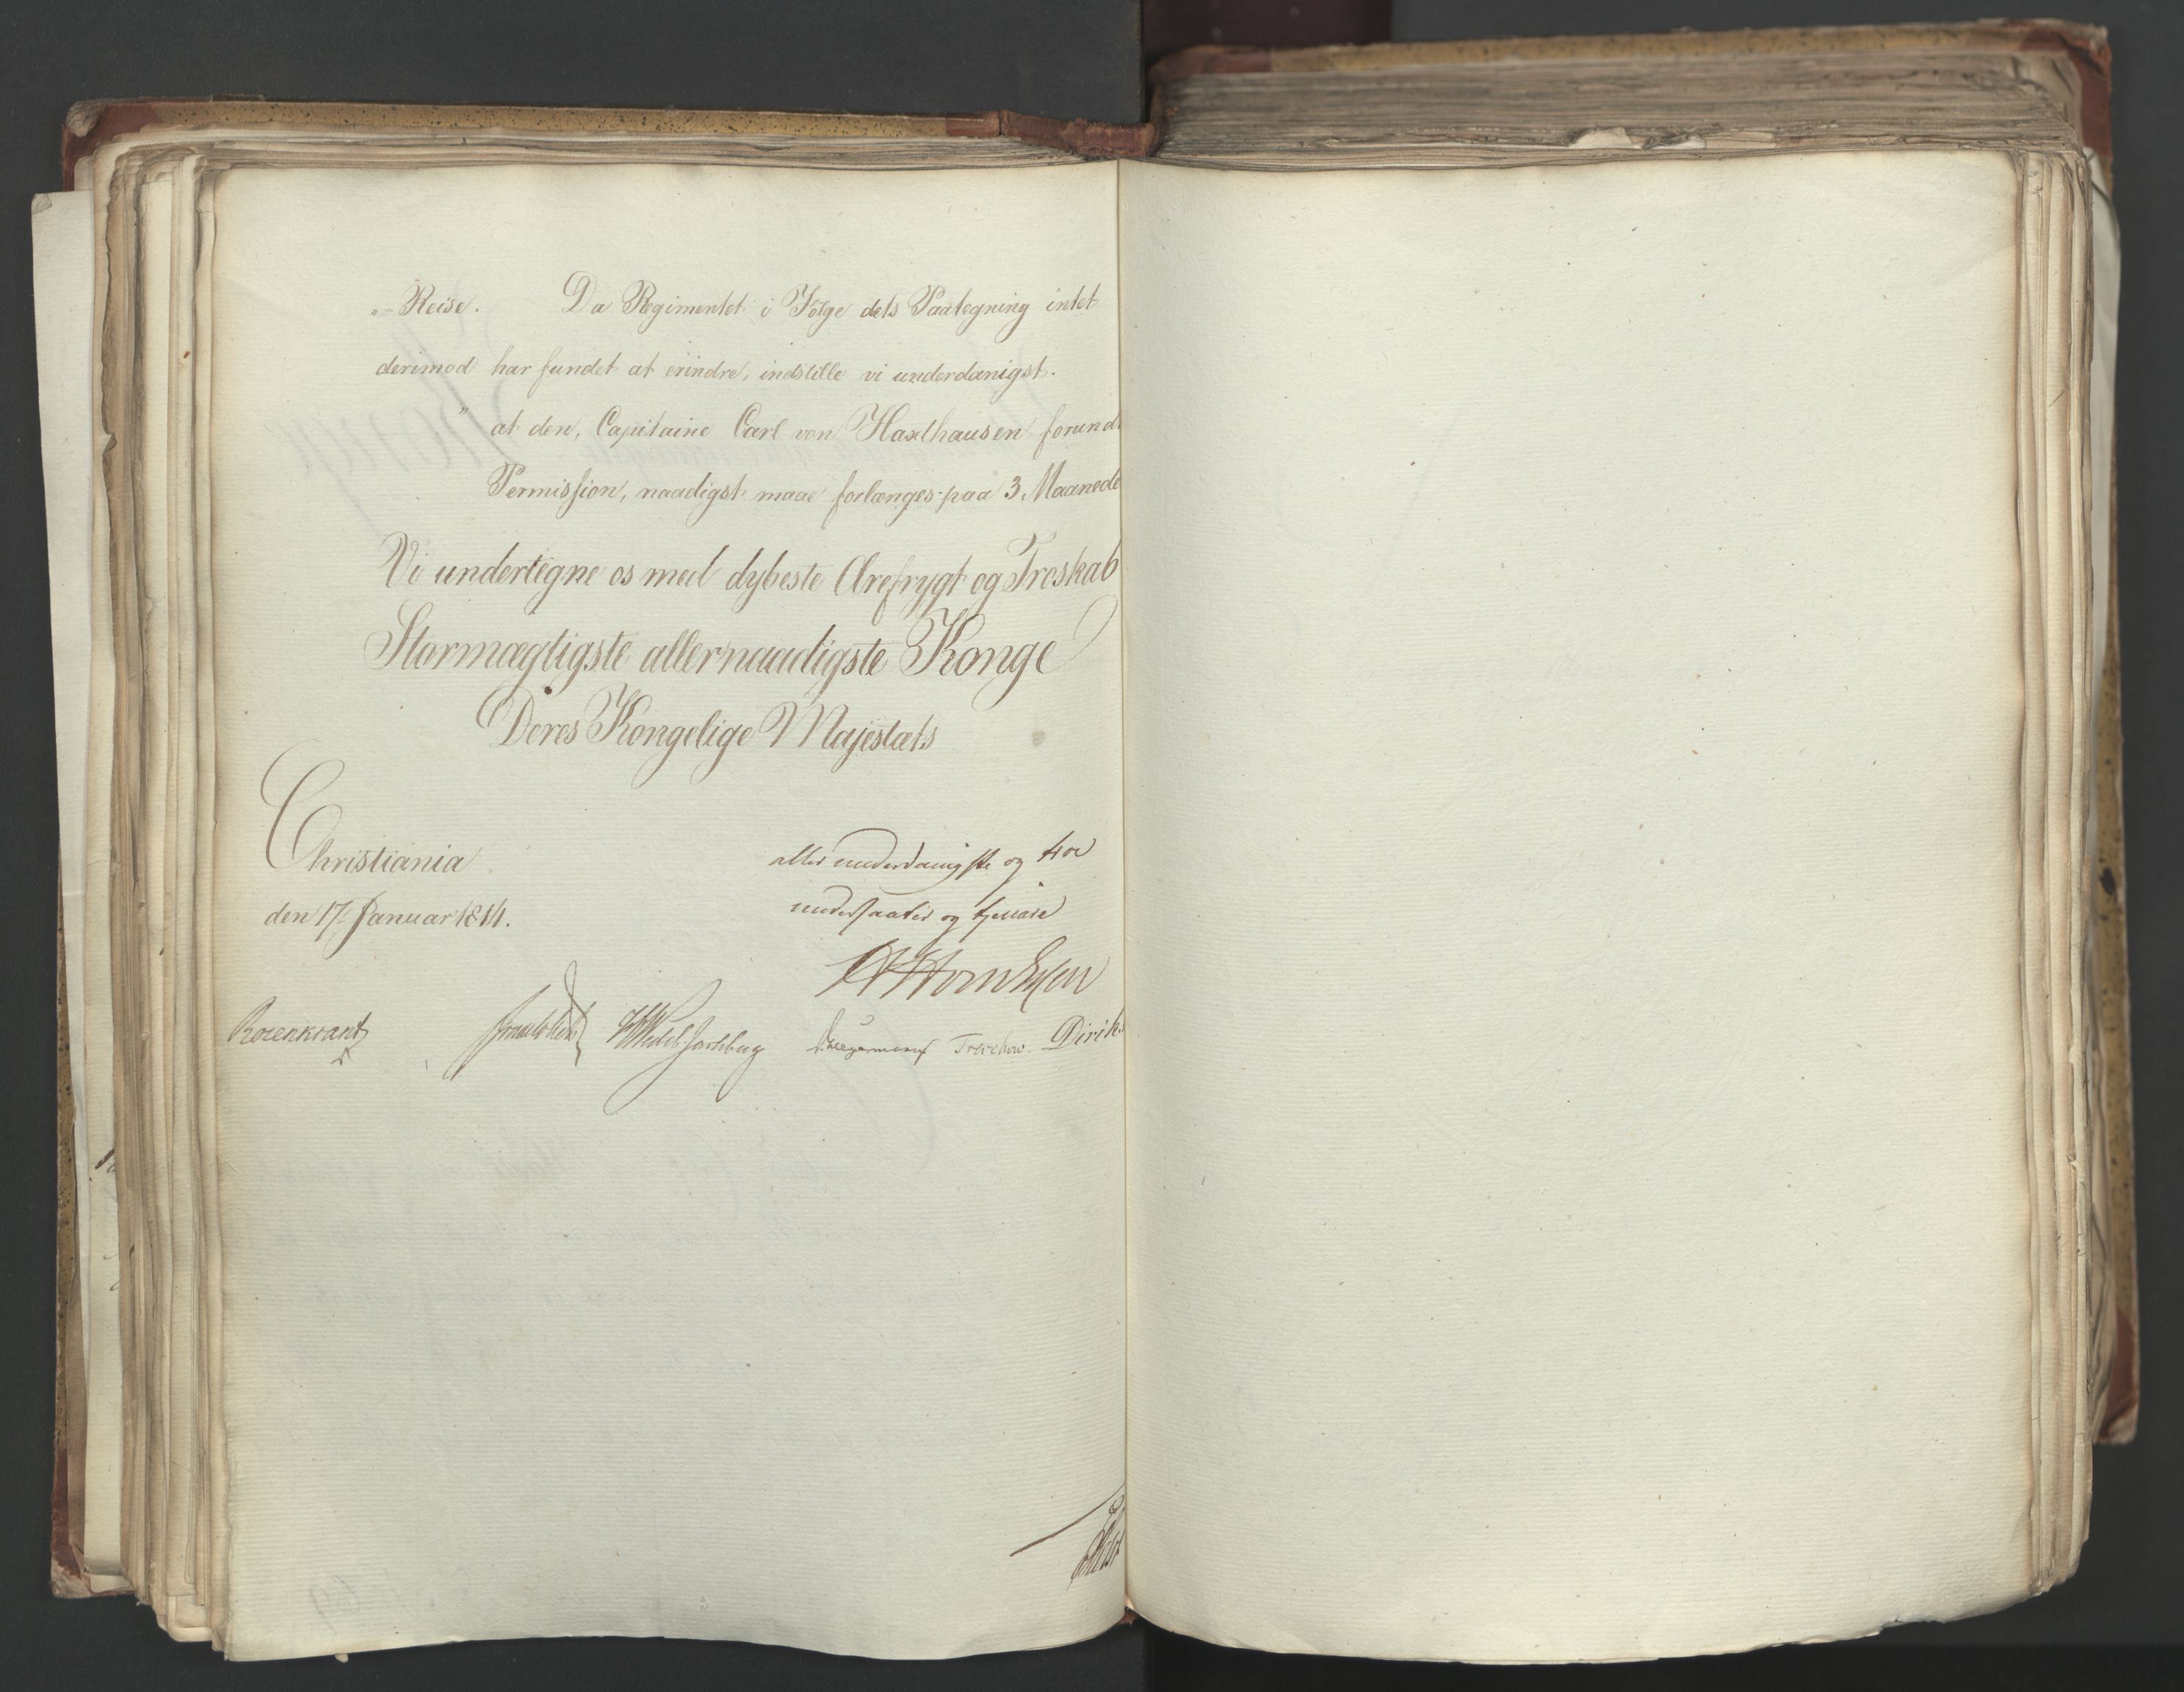 "- Reise. Da Regimentet i Følge dets Paategning intet
derimod har fundet at erindre, indstille vi underdanigst.
" at den, Capitaine Carl von Haxthausen forundt
Permission, naadigst maae forlænges paa 3 Maaneder
Vi undertegne os med dybeste Ærefrygt og Troskab
Stormægtigste allernaadigste Konge
Deres Kongelige Majestæts
Christiania
allerunderdanigste og troe
den 17de Januar 1814.
undersaatter og tjenere
Rosenkrantz
Wedel Jarlsberg Hegermann Treschow. Diriks